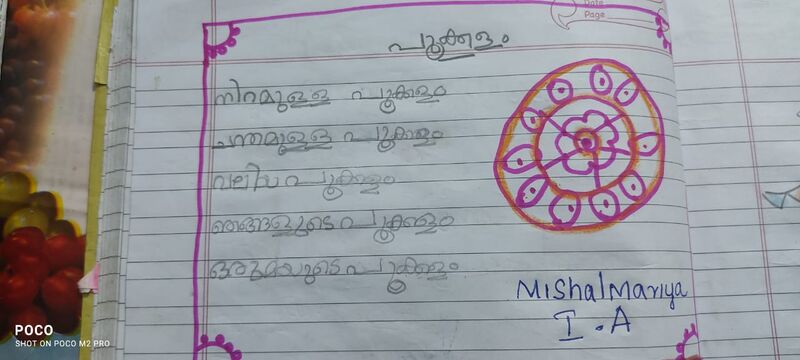 Date
Page
പൂക്കളം
നിറമുള്ള പൂക്കളം
ചന്തമുള്ള പൂക്കളം
വലിയ പൂക്കളം
ഞങ്ങളുടെ പൂക്കളം
ഒരുമയുടെ പൂക്കളം
Mishal Mariya
I. A
POCO
SHOT ON POCO M2 PRO